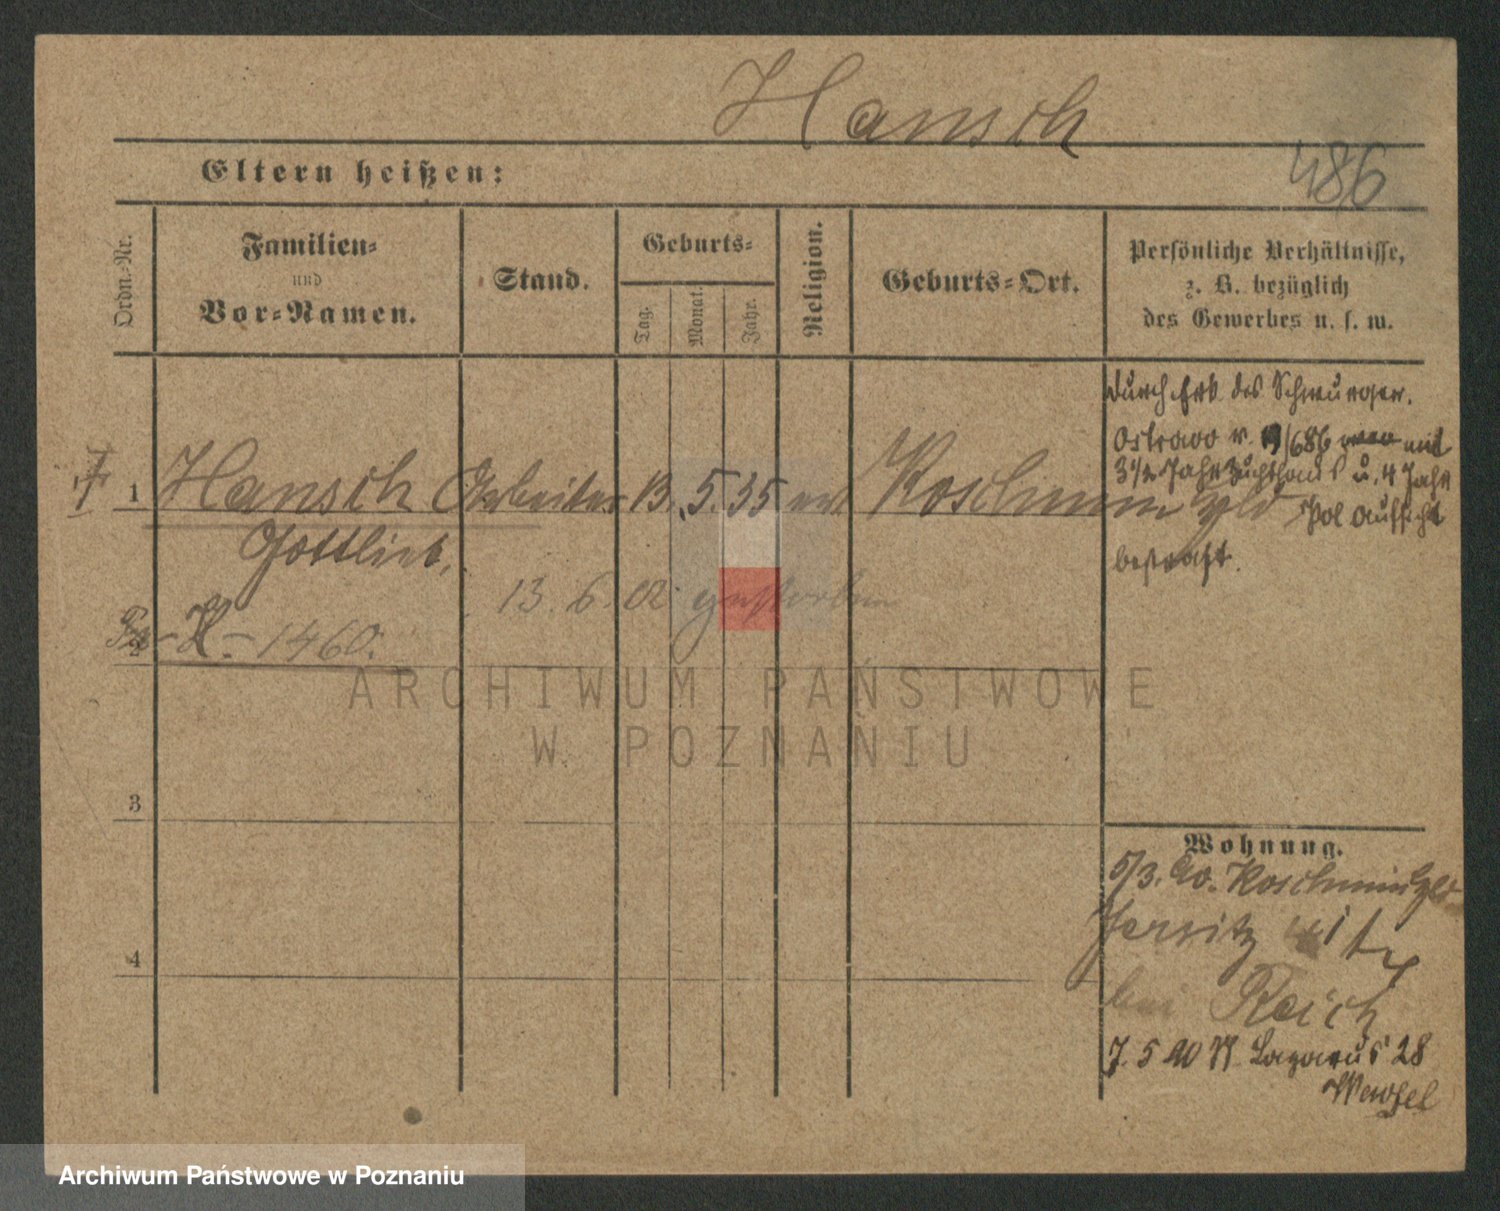 Hansch
486
Eltern heißen:
Ordn.-Nr.
Familien-
und
Vor-Namen.
Stand.
Geburts-
Tag.
Monat.
Jahr.
Religion.
Geburts-Ort.
Persönliche Verhältnisse,
z. B. bezüglich
des Gewerbes u. s. w.
durch Erk. des Schwurger.
Ostrowo v. /686 mit
3 1/2 Jahr Zuchthaus u. 4 Jahr
Pol Aufsicht
bestraft.
1 Hansch Arbeiter 13. 5. 35 Koschmin
Gottlieb,
13. 6. 02 gestorben
2 K. 1460.
ARCHIWUM PAŃSTWOWE
W POZNANIU
3
4
Wohnung.
5/3. 90. Koschmin
Jersitz
bei Reich
7. 5 90 St. Lazarus 28
Archiwum Państwowe w Poznaniu